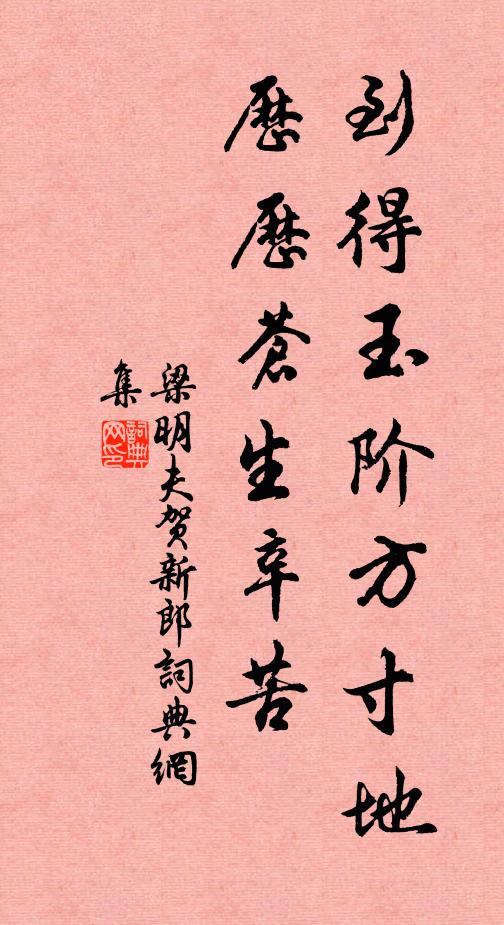 到得玉阶方寸地
歷歷蒼生辛苦
梁明夫贺新郎詞典網
集
詞典
网印